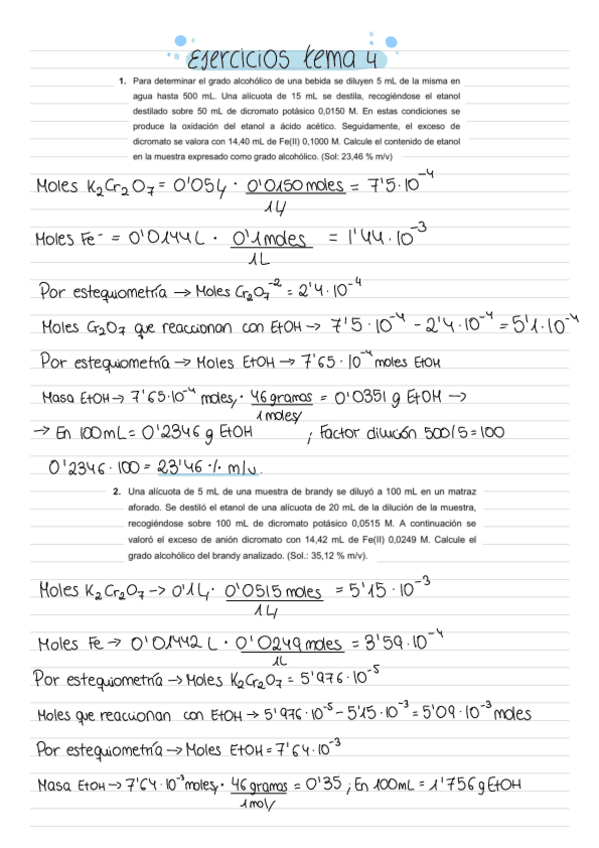 Ejercicios tema 4
1. Para determinar el grado alcohólico de una bebida se diluyen 5 mL de la misma en
agua hasta 500 mL. Una alícuota de 15 mL se destila, recogiéndose el etanol
destilado sobre 50 mL de dicromato potásico 0,0150 M. En estas condiciones se
produce la oxidación del etanol a ácido acético. Seguidamente, el exceso de
dicromato se valora con 14,40 mL de Fe(II) 0,1000 M. Calcule el contenido de etanol
en la muestra expresado como grado alcohólico. (Sol: 23,46 % m/v)
Moles K₂Cr₂O₇ = 0'05L · 0'0150 moles / 1L = 7'5·10⁻⁴
Moles Fe⁻ = 0'0144L · 0'1 moles / 1L = 1'44·10⁻³
Por estequiometría → Moles Cr₂O₇⁻² = 2'4·10⁻⁴
Moles Cr₂O₇ que reaccionan con EtOH → 7'5·10⁻⁴ - 2'4·10⁻⁴ = 5'1·10⁻⁴
Por estequiometría → Moles EtOH → 7'65·10⁻⁴ moles EtOH
Masa EtOH → 7'65·10⁻⁴ moles · 46 gramos / 1 moles = 0'0351 g EtOH →
→ En 100mL = 0'2346 g EtOH ; Factor dilución 500/5=100
0'2346·100 = 23'46 % m/v.
2. Una alícuota de 5 mL de una muestra de brandy se diluyó a 100 mL en un matraz
aforado. Se destiló el etanol de una alícuota de 20 mL de la dilución de la muestra,
recogiéndose sobre 100 mL de dicromato potásico 0,0515 M. A continuación se
valoró el exceso de anión dicromato con 14,42 mL de Fe(II) 0,0249 M. Calcule el
grado alcohólico del brandy analizado. (Sol.: 35,12 % m/v).
Moles K₂Cr₂O₇ -> 0'1L · 0'0515 moles / 1L = 5'15·10⁻³
Moles Fe → 0'01442 L · 0'0249 moles / 1L = 3'59·10⁻⁴
Por estequiometría → Moles K₂Cr₂O₇ = 5'976·10⁻⁵
Moles que reaccionan con EtOH → 5'976·10⁻⁵ - 5'15·10⁻³ = 5'09·10⁻³ moles
Por estequiometría → Moles EtOH = 7'64·10⁻³
Masa EtOH → 7'64·10⁻³ moles · 46 gramos / 1 mol = 0'35 ; En 100mL = 1'756 g EtOH